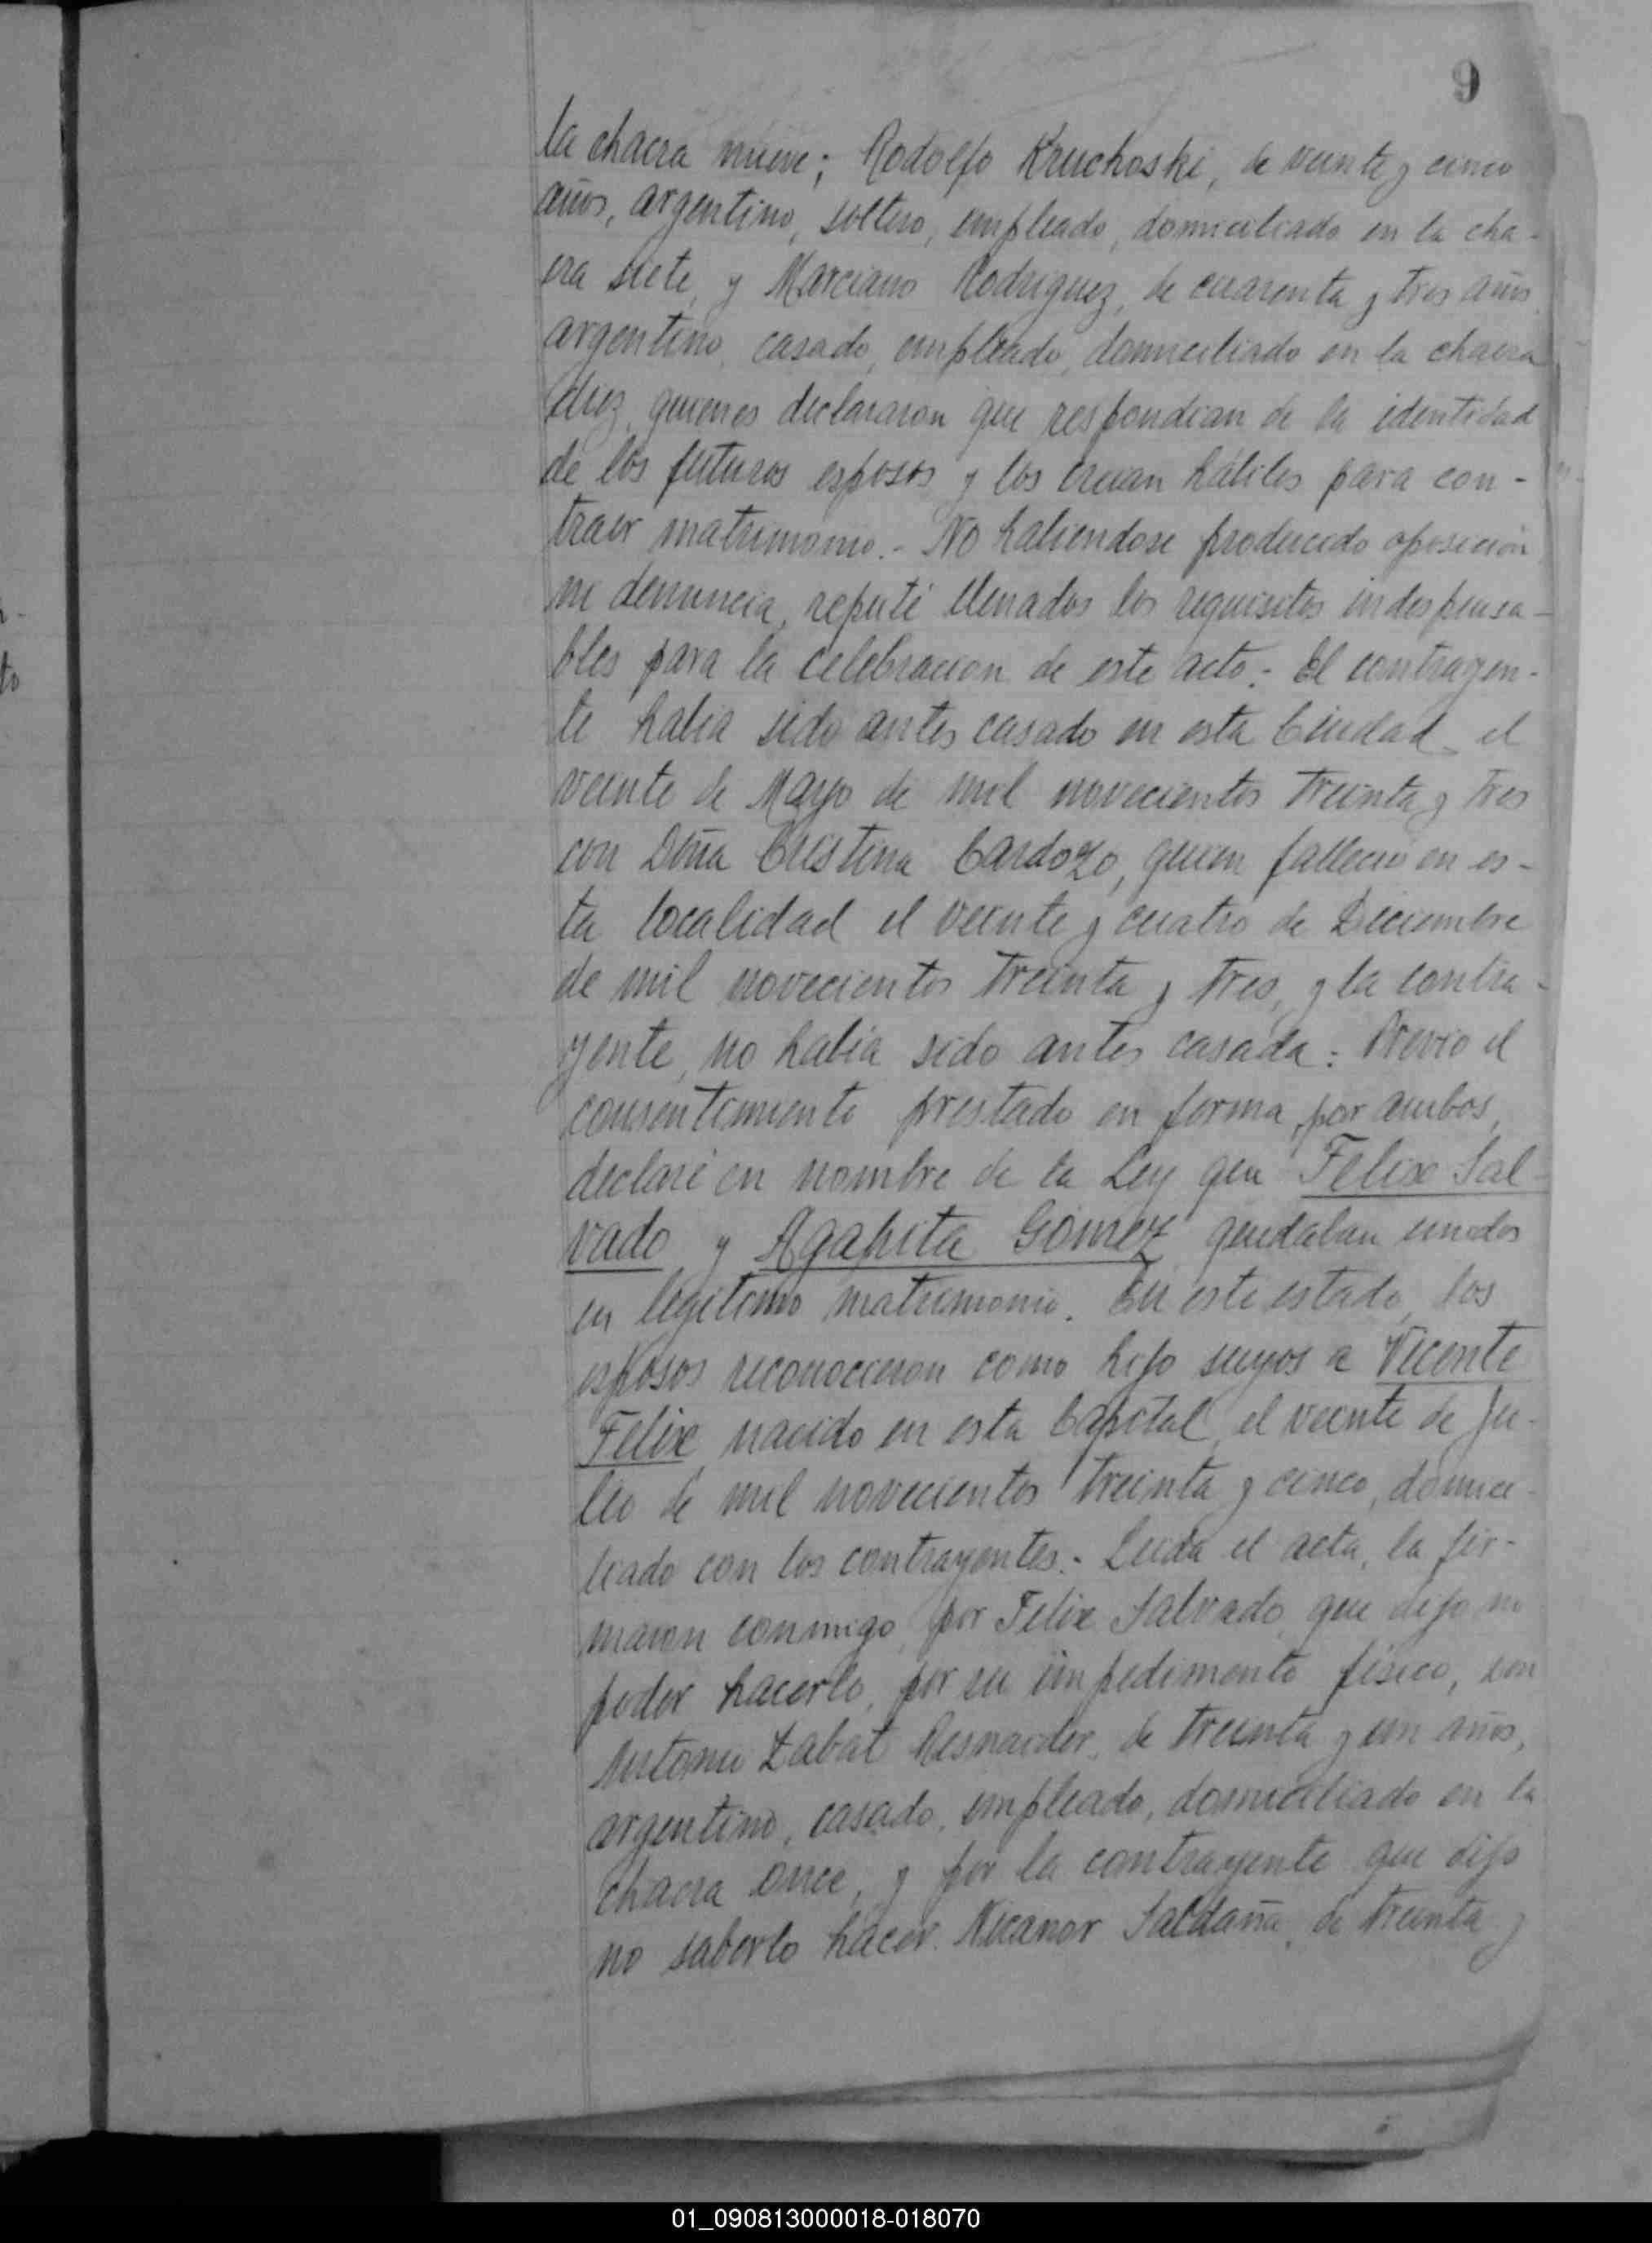 9
la chacra nueve; Rodolfo Kruchoski, de veinte y cinco
años, argentino, soltero, empleado, domiciliado en la cha-
cra siete, y Marciano Rodriguez, de cuarenta y tres años
argentino, casado, empleado, domiciliado en la chacra
diez, quienes declararon que respondian de la identidad
de los futuros esposos y los creian hábiles para con-
traer matrimonio.- No habiendose producido oposicion
ni denuncia, reputé llenados los requisitos indispensa-
bles para la celebracion de este acto.- El contrayen-
te habia sido antes casado en esta Ciudad el
veinte de Mayo de mil novecientos treinta y tres
con Doña Cristina Cardozo, quien fallecio en es-
ta localidad el veinte y cuatro de Diciembre
de mil novecientos treinta y tres, y la contra-
yente, no habia sido antes casada: Previo el
consentimiento prestado en forma, por ambos,
declaré en nombre de la Ley que Felix Sal-
vado y Agapita Gómez quedaban unidos
en legitimo matrimonio. En este estado, los
esposos reconocieron como hijo suyos a Vicente
Felix, nacido en esta Capital, el veinte de Ju-
lio de mil novecientos treinta y cinco, domici-
liado con los contrayentes.- Leida el acta, la fir-
maron conmigo, por Felix Salvado, que dijo no
poder hacerlo, por su impedimento físico, con
Antonio Zabat, de treinta y un años,
argentino, casado, empleado, domiciliado en la
chacra once, y por la contrayente que dijo
no saberlo hacer. Nicanor Saldaña, de treinta y
01_090813000018-018070